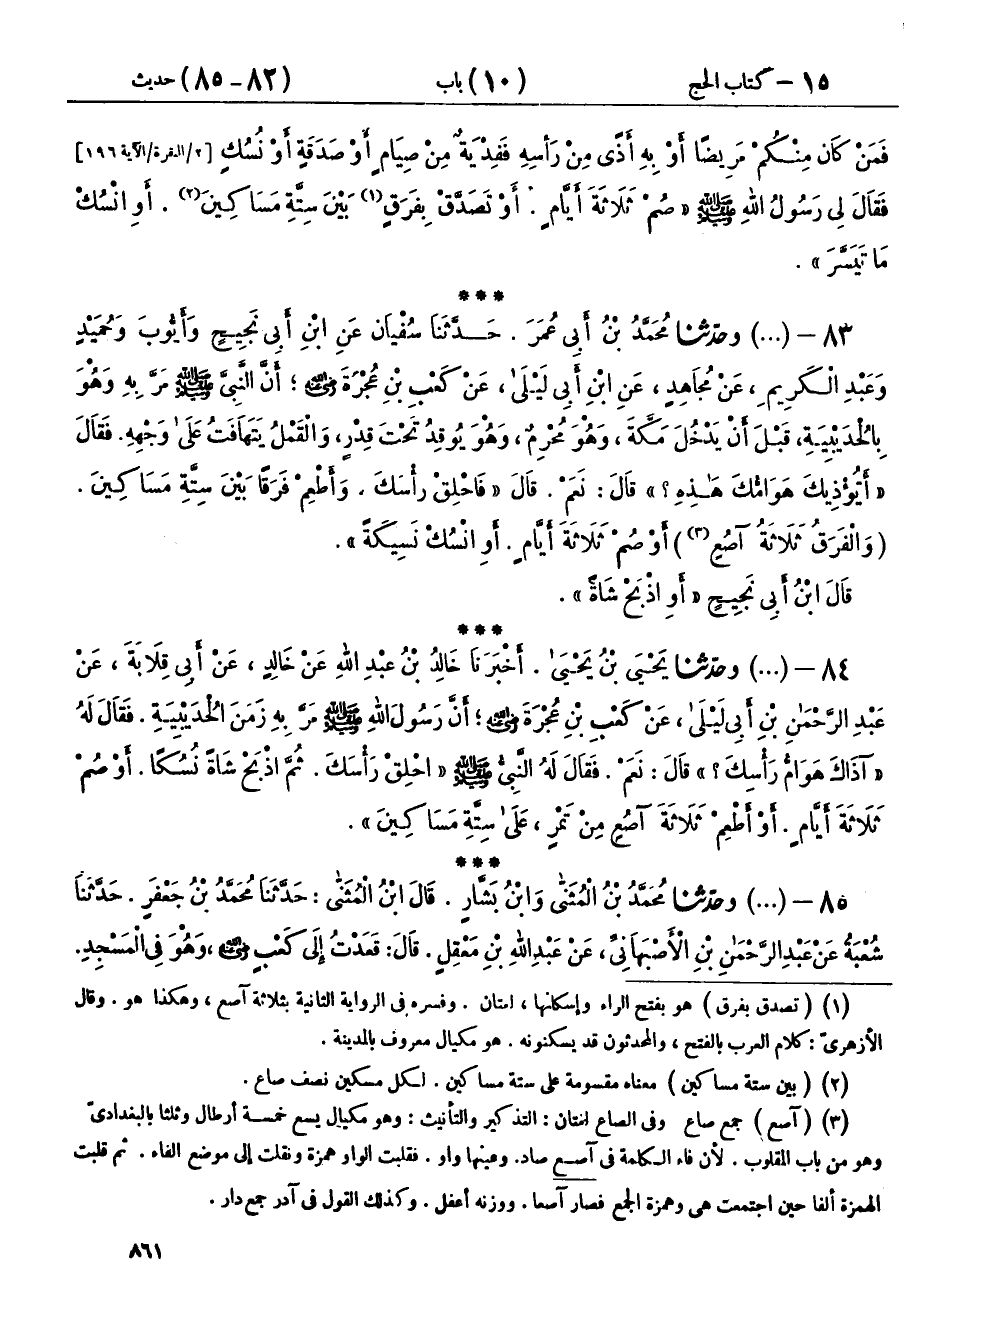 ١٥ – كتاب الحج (١٠) باب (٨٢–٨٥) حديث
فَمَنْ كَانَ مِنْكُمْ مَرِيضًا أَوْ بِهِ أَذًى مِنْ رَأْسِهِ فَفِدْيَةٌ مِنْ صِيَامٍ أَوْ صَدَقَةٍ أَوْ نُسُكٍ [٢/البقرة/الآية ١٩٦]
فَقَالَ لِي رَسُولُ اللهِ ﷺ « صُمْ ثَلَاثَةَ أَيَّامٍ . أَوْ تَصَدَّقْ بِفَرَقٍ(١) بَيْنَ سِتَّةِ مَسَاكِينَ(٢) . أَوِ انْسُكْ
مَا تَيَسَّرَ » .
***
٨٣ – (...) وحدثنا مُحَمَّدُ بْنُ أَبِي عُمَرَ . حَدَّثَنَا سُفْيَانُ عَنِ ابْنِ أَبِي نَجِيحٍ وَأَيُّوبَ وَحُمَيْدٍ
وَعَبْدِ الْكَرِيمِ ، عَنْ مُجَاهِدٍ ، عَنِ ابْنِ أَبِي لَيْلَىٰ ، عَنْ كَعْبِ بْنِ عُجْرَةَ رضي الله عنه ؛ أَنَّ النَّبِيَّ ﷺ مَرَّ بِهِ وَهُوَ
بِالْحُدَيْبِيَةِ، قَبْلَ أَنْ يَدْخُلَ مَكَّةَ ، وَهُوَ مُحْرِمٌ ، وَهُوَ يُوقِدُ تَحْتَ قِدْرٍ، وَالْقَمْلُ يَتَهَافَتُ عَلَىٰ وَجْهِهِ. فَقَالَ
« أَيُؤْذِيكَ هَوَامُّكَ هَٰذِهِ ؟ » قَالَ : نَعَمْ . قَالَ « فَاحْلِقْ رَأْسَكَ . وَأَطْعِمْ فَرَقًا بَيْنَ سِتَّةِ مَسَاكِينَ .
( وَالْفَرَقُ ثَلَاثَةُ آصُعٍ(٣) ) أَوْ صُمْ ثَلَاثَةَ أَيَّامٍ . أَوِ انْسُكْ نَسِيكَةً » .
قَالَ ابْنُ أَبِي نَجِيحٍ « أَوِ اذْبَحْ شَاةً » .
***
٨٤ – (...) وحدثنا يَحْيَى بْنُ يَحْيَىٰ . أَخْبَرَنَا خَالِدُ بْنُ عَبْدِ اللهِ عَنْ خَالِدٍ ، عَنْ أَبِي قِلَابَةَ ، عَنْ
عَبْدِ الرَّحْمَٰنِ بْنِ أَبِي لَيْلَىٰ ، عَنْ كَعْبِ بْنِ عُجْرَةَ رضي الله عنه ؛ أَنَّ رَسُولَ اللهِ ﷺ مَرَّ بِهِ زَمَنَ الْحُدَيْبِيَةِ . فَقَالَ لَهُ
« آذَاكَ هَوَامُّ رَأْسِكَ ؟ » قَالَ : نَعَمْ . فَقَالَ لَهُ النَّبِيُّ ﷺ « احْلِقْ رَأْسَكَ . ثُمَّ اذْبَحْ شَاةً نُسُكًا . أَوْ صُمْ
ثَلَاثَةَ أَيَّامٍ . أَوْ أَطْعِمْ ثَلَاثَةَ آصُعٍ مِنْ تَمْرٍ ، عَلَىٰ سِتَّةِ مَسَاكِينَ » .
***
٨٥ – (...) وحدثنا مُحَمَّدُ بْنُ الْمُثَنَّىٰ وَابْنُ بَشَّارٍ . قَالَ ابْنُ الْمُثَنَّىٰ : حَدَّثَنَا مُحَمَّدُ بْنُ جَعْفَرٍ . حَدَّثَنَا
شُعْبَةُ عَنْ عَبْدِ الرَّحْمَٰنِ بْنِ الْأَصْبَهَانِيِّ ، عَنْ عَبْدِ اللهِ بْنِ مَعْقِلٍ . قَالَ: قَعَدْتُ إِلَى كَعْبٍ رضي الله عنه ، وَهُوَ فِي الْمَسْجِدِ.
(١) ( تصدق بفرق ) هو بفتح الراء وإسكانها ، لغتان . وفسره في الرواية الثانية بثلاثة آصع ، وهكذا هو . وقال
الأزهريّ : كلام العرب بالفتح ، والمحدثون قد يسكنونه . هو مكيال معروف بالمدينة .
(٢) ( بين ستة مساكين ) معناه مقسومة على ستة مساكين . لكل مسكين نصف صاع .
(٣) ( آصع ) جمع صاع وفي الصاع لغتان : التذكير والتأنيث : وهو مكيال يسع خمسة أرطال وثلثا بالبغداديّ
وهو من باب المقلوب . لأن فاء الكلمة في آصع صاد. وعينها واو . فقلبت الواو همزة ونقلت إلى موضع الفاء . ثم قلبت
الهمزة ألفا حين اجتمعت هي وهمزة الجمع فصار آصعا . ووزنه أعفل . وكذلك القول في آدر جمع دار .
٨٦١